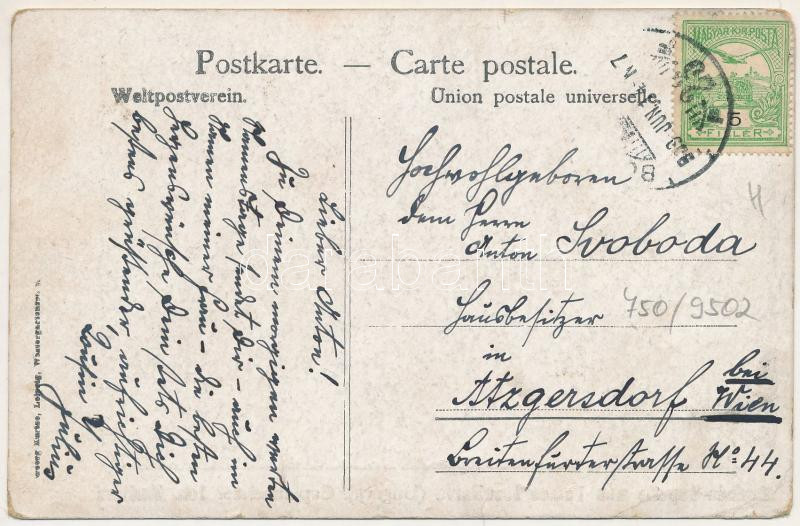 Postkarte. — Carte postale.
Weltpostverein. Union postale universelle.
MAGYAR KIR. POSTA
5
FILLÉR
Hochwohlgeboren
dem Herrn
Anton Svoboda
Hausbesitzer
750/9502
in
Atzgersdorf bei Wien
Breitenfurterstrasse No 44.
Lieber Anton!
Zu Deinem morgigen werten
Namenstage sendet Dir – auch im
Namen meiner Frau – die besten
Dein stets Dich
bestens grüssender, aufrichtiger
Cousin
Julius
darabanth